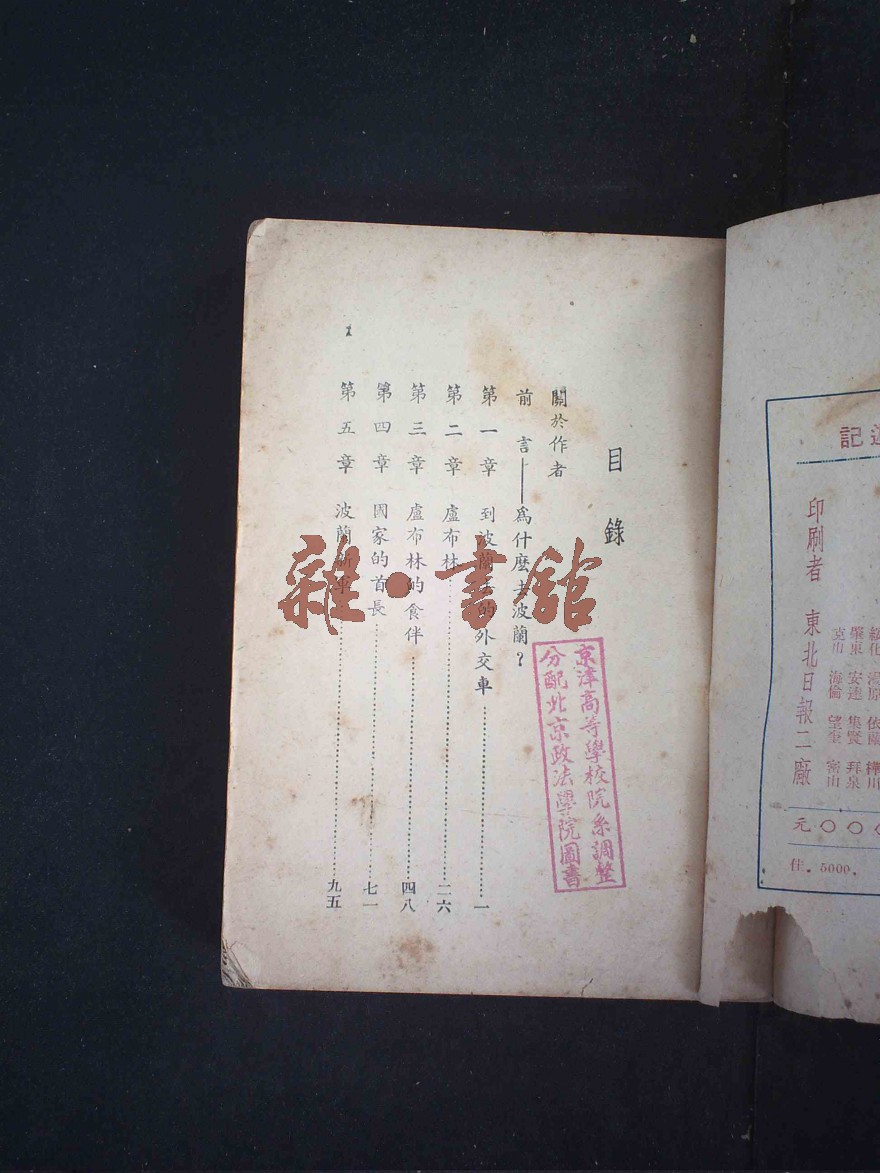 目錄
關於作者
前言——爲什麼去波蘭?
第一章 到波蘭去的外交車……一
第二章 盧布林……二六
第三章 盧布林的食伴……四八
第四章 國家的首長……七一
第五章 波蘭新軍……九五
京津高等學校院系調整
分配北京政法學院圖書
雜·書館
記
印刷者 東北日報二廠
克山 海倫 望奎 密山
肇東 安達 集賢 拜泉
綏化 依蘭 樺川
元〇〇〇
佳. 5000.